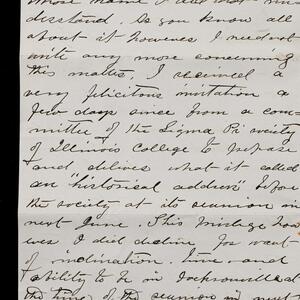 whose name I did not un-
disstand. As you know all
about it however I need not
write any more concerning
this matter. I received a
very felicitous invitation a
few days since from a com-
mittee of the Sigma Pi society
of Illinois College to prepare
and deliver what it called
an "historical address" before
the society at its reunion in
next June. This privilege how-
ever I did decline for want
of inclination, time and
ability to be in Jacksonville at
the time of the reunion in next